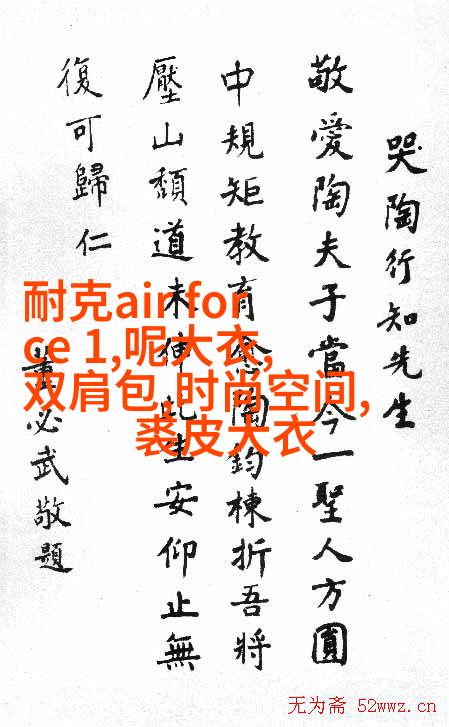 哭陶行知先生
敬愛陶夫子當今一聖人方圓
中規矩教育陶鈞棟折吾將
壓山頹道未伸此生安仰止無
復可歸仁
董必武敬題
耐克ainfor
ce 1,呢大衣,
双肩包,时尚空间,
裘皮大衣
无为斋 52wwz.cn